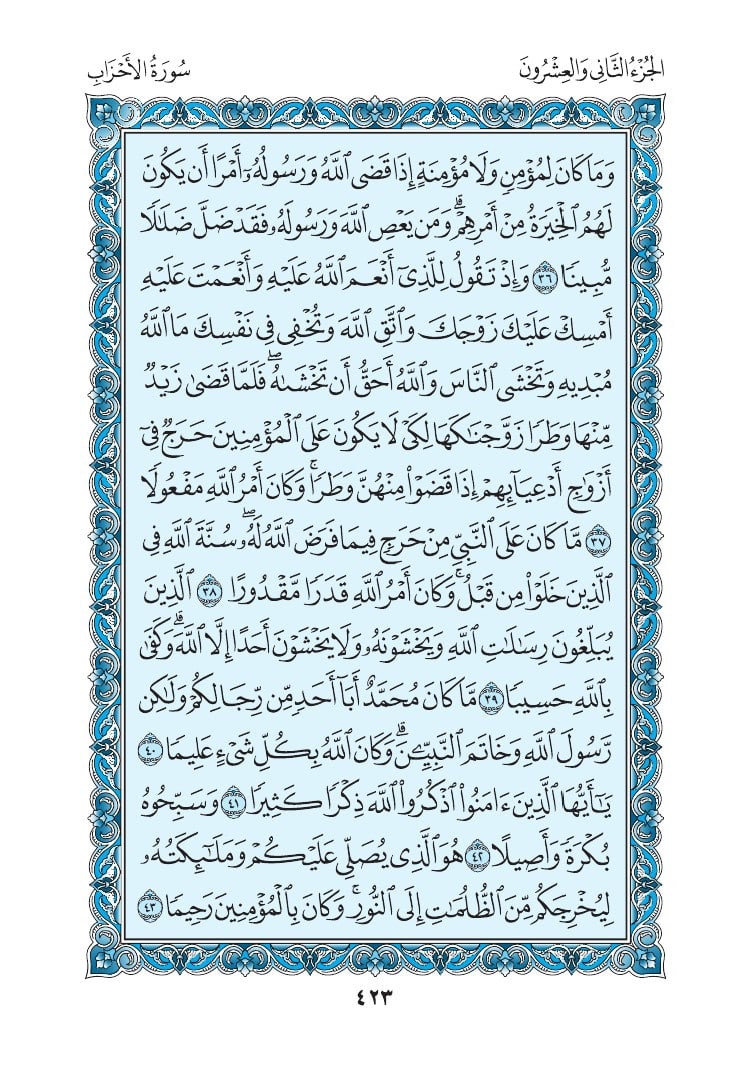 الجُزْءُ الثَّانِي وَالعِشْرُونَ
سُورَةُ الأَحْزَابِ
وَمَا كَانَ لِمُؤْمِنٖ وَلَا مُؤْمِنَةٍ إِذَا قَضَى ٱللَّهُ وَرَسُولُهُۥٓ أَمۡرًا أَن يَكُونَ
لَهُمُ ٱلۡخِيَرَةُ مِنۡ أَمۡرِهِمۡۗ وَمَن يَعۡصِ ٱللَّهَ وَرَسُولَهُۥ فَقَدۡ ضَلَّ ضَلَٰلٗا
مُّبِينٗا ٣٦ وَإِذۡ تَقُولُ لِلَّذِيٓ أَنۡعَمَ ٱللَّهُ عَلَيۡهِ وَأَنۡعَمۡتَ عَلَيۡهِ
أَمۡسِكۡ عَلَيۡكَ زَوۡجَكَ وَٱتَّقِ ٱللَّهَ وَتُخۡفِي فِي نَفۡسِكَ مَا ٱللَّهُ
مُبۡدِيهِ وَتَخۡشَى ٱلنَّاسَ وَٱللَّهُ أَحَقُّ أَن تَخۡشَىٰهُۖ فَلَمَّا قَضَىٰ زَيۡدٞ
مِّنۡهَا وَطَرٗا زَوَّجۡنَٰكَهَا لِكَيۡ لَا يَكُونَ عَلَى ٱلۡمُؤۡمِنِينَ حَرَجٞ فِيٓ
أَزۡوَٰجِ أَدۡعِيَآئِهِمۡ إِذَا قَضَوۡاْ مِنۡهُنَّ وَطَرٗاۚ وَكَانَ أَمۡرُ ٱللَّهِ مَفۡعُولٗا
٣٧ مَّا كَانَ عَلَى ٱلنَّبِيِّ مِنۡ حَرَجٖ فِيمَا فَرَضَ ٱللَّهُ لَهُۥۖ سُنَّةَ ٱللَّهِ فِي
ٱلَّذِينَ خَلَوۡاْ مِن قَبۡلُۚ وَكَانَ أَمۡرُ ٱللَّهِ قَدَرٗا مَّقۡدُورًا ٣٨ ٱلَّذِينَ
يُبَلِّغُونَ رِسَٰلَٰتِ ٱللَّهِ وَيَخۡشَوۡنَهُۥ وَلَا يَخۡشَوۡنَ أَحَدًا إِلَّا ٱللَّهَۗ وَكَفَىٰ
بِٱللَّهِ حَسِيبٗا ٣٩ مَّا كَانَ مُحَمَّدٌ أَبَآ أَحَدٖ مِّن رِّجَالِكُمۡ وَلَٰكِن
رَّسُولَ ٱللَّهِ وَخَاتَمَ ٱلنَّبِيِّـۧنَۗ وَكَانَ ٱللَّهُ بِكُلِّ شَيۡءٍ عَلِيمٗا ٤٠
يَٰٓأَيُّهَا ٱلَّذِينَ ءَامَنُواْ ٱذۡكُرُواْ ٱللَّهَ ذِكۡرٗا كَثِيرٗا ٤١ وَسَبِّحُوهُ
بُكۡرَةٗ وَأَصِيلًا ٤٢ هُوَ ٱلَّذِي يُصَلِّي عَلَيۡكُمۡ وَمَلَٰٓئِكَتُهُۥ
لِيُخۡرِجَكُم مِّنَ ٱلظُّلُمَٰتِ إِلَى ٱلنُّورِۚ وَكَانَ بِٱلۡمُؤۡمِنِينَ رَحِيمٗا ٤٣
٤٢٣